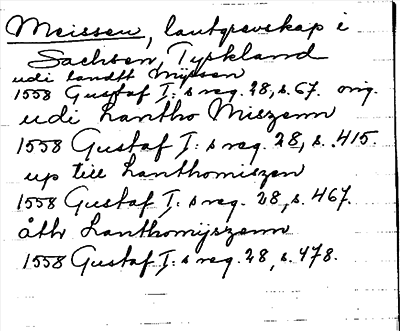 Meissen, lantgrevskap i
Sachsen, Tyskland
udi landtt Mijssen
1558 Gustaf I: s reg. 28, s. 67. orig.
udi Lantho Miszenn
1558 Gustaf I: s reg. 28, s. 415.
up till Lanthomiszen
1558 Gustaf I: s reg. 28, s. 467.
åthr Lanthomijszenn
1558 Gustaf I: s reg. 28, s. 478.